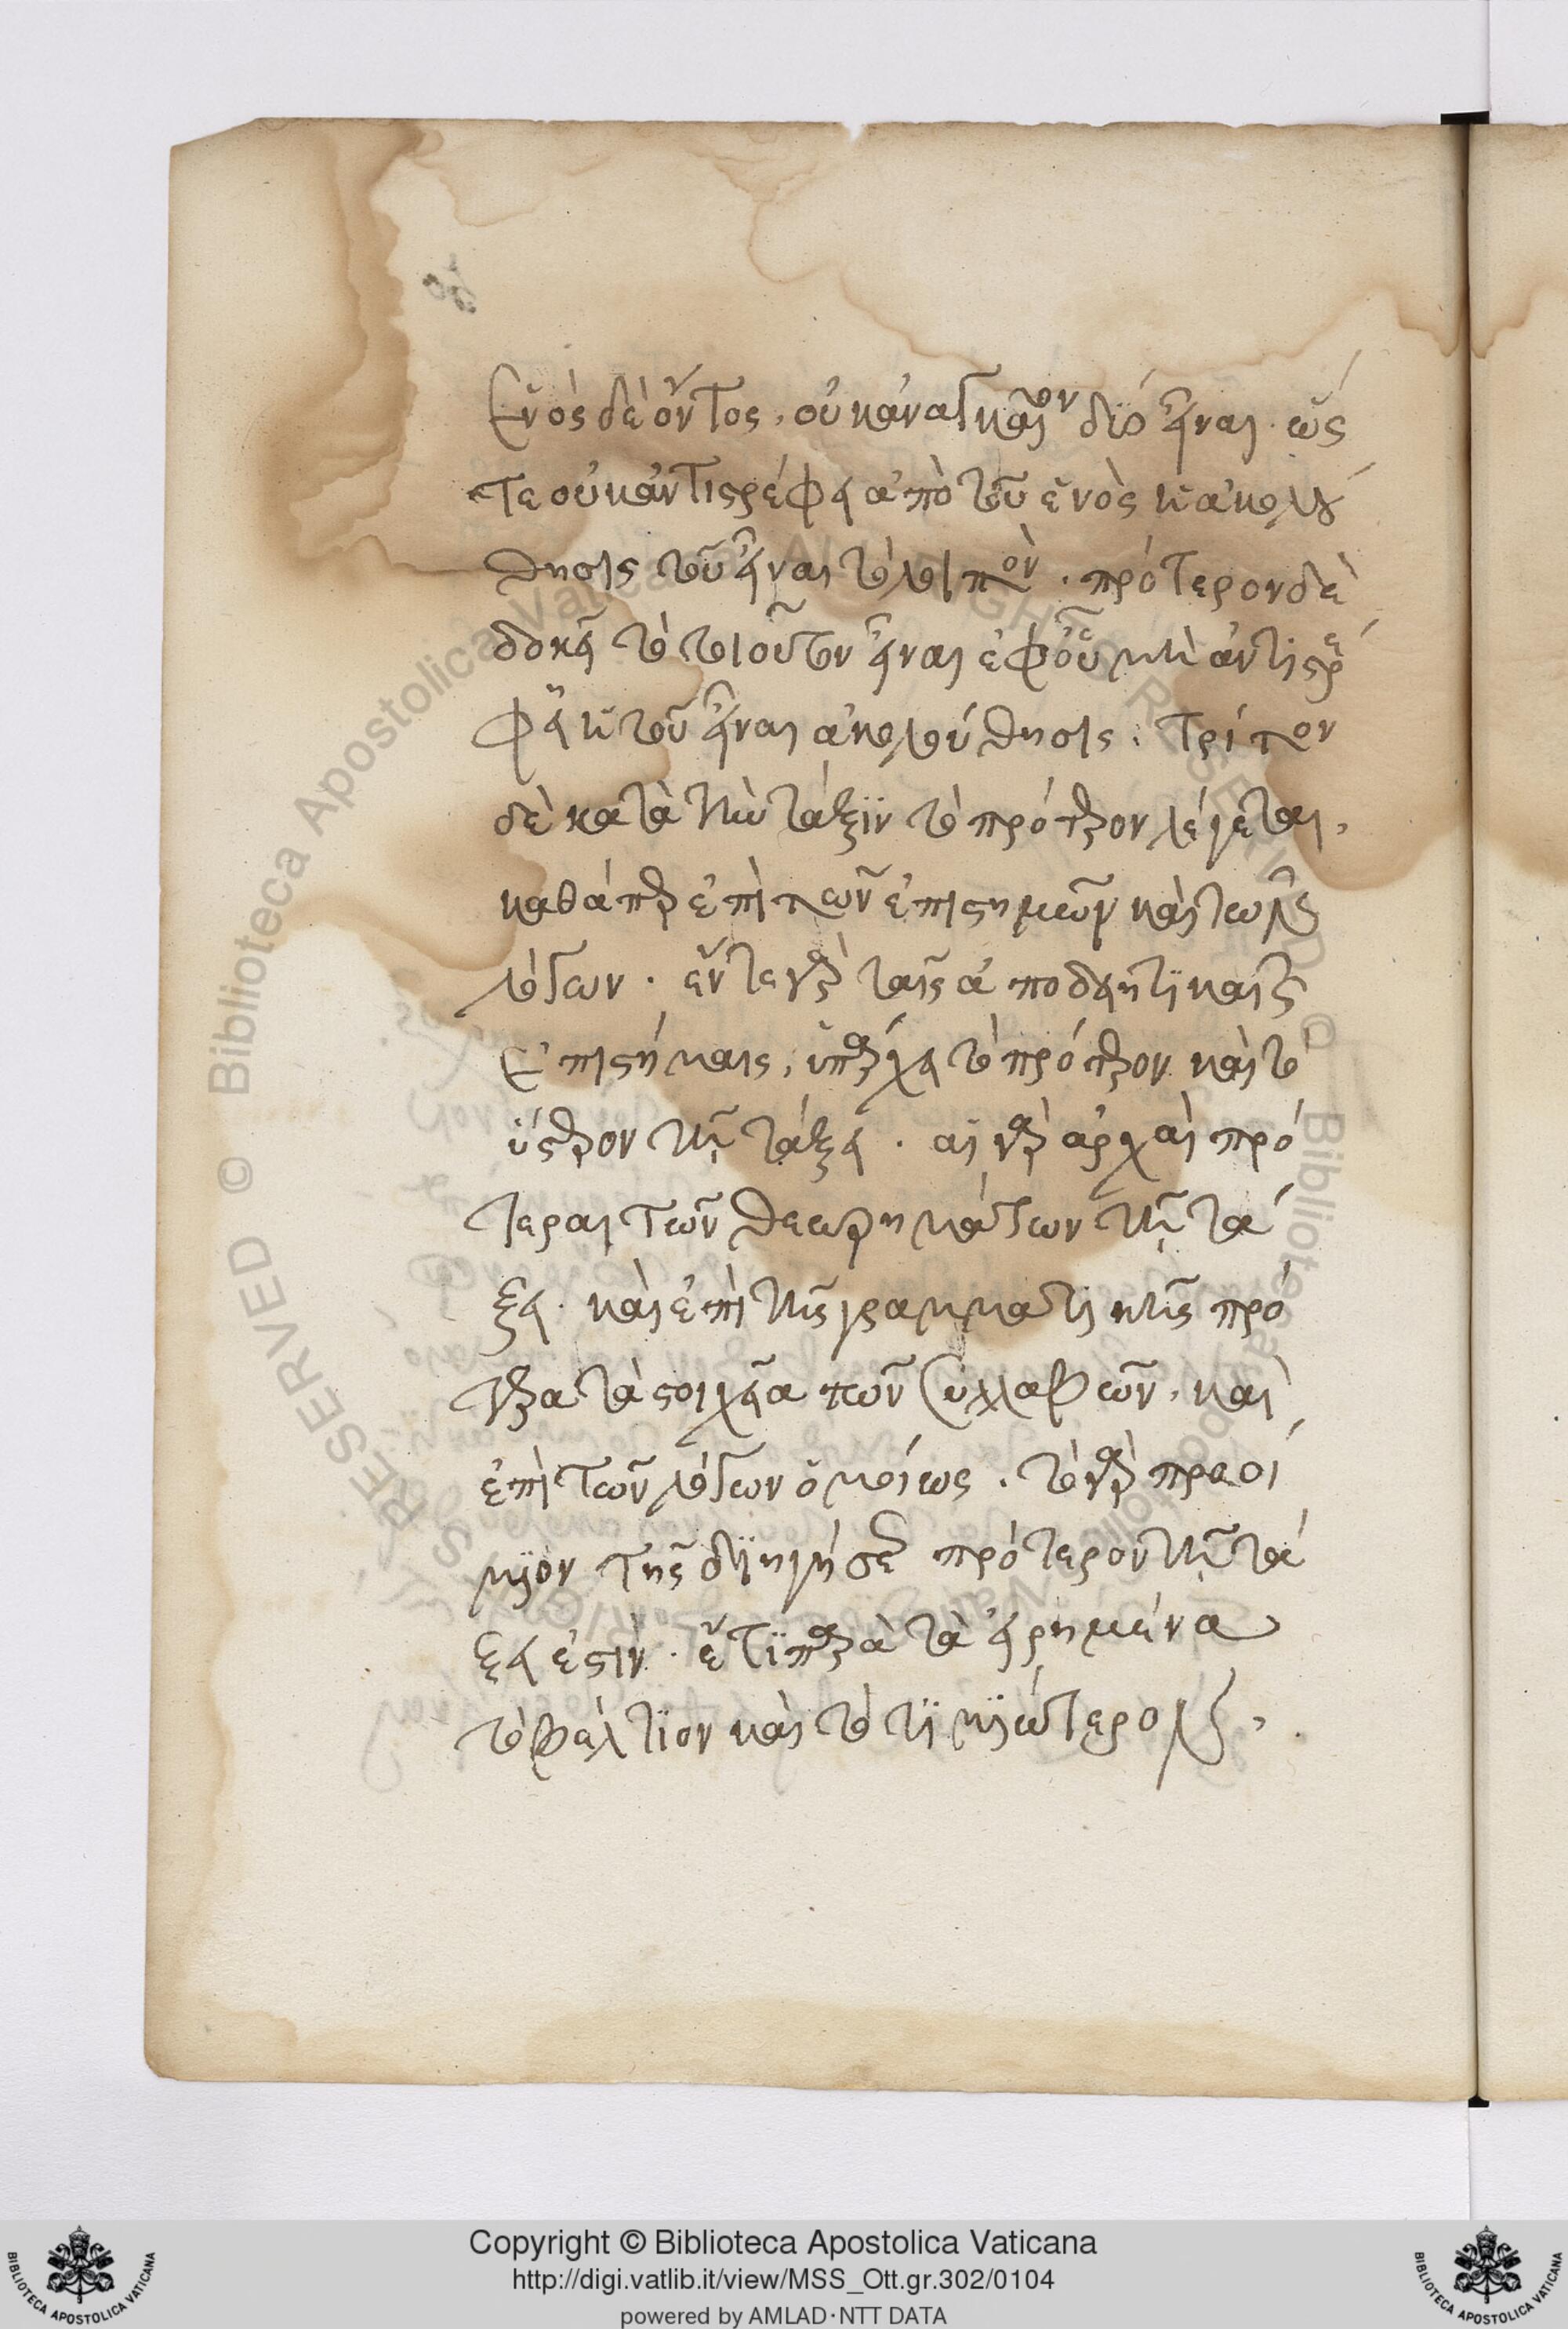 ἑνὸς δὲ ὄντος, οὐκ ἀναγκαῖον δύο εἶναι· ὥς
τε οὐκ ἀντιστρέφει ἀπὸ τοῦ ἑνὸς ἡ ἀκολού
θησις τοῦ εἶναι τὸ λοιπόν. πρότερον δὲ
δοκεῖ τὸ τοιοῦτον εἶναι ἀφ' οὗ μὴ ἀντιστρέ
φει ἡ τοῦ εἶναι ἀκολούθησις. τρίτον
δὲ κατὰ τὴν τάξιν τὸ πρότερον λέγεται,
καθάπερ ἐπὶ τῶν ἐπιστημῶν καὶ τῶν
λόγων. ἔν τε γὰρ ταῖς ἀποδεικτικαῖς
ἐπιστήμαις, ὑπάρχει τὸ πρότερον καὶ τὸ
ὕστερον τῇ τάξει. αἱ γὰρ ἀρχαὶ πρό
τεραι τῶν θεωρημάτων τῇ τά
ξει. καὶ ἐπὶ τῆς γραμματικῆς πρό
τερα τὰ στοιχεῖα τῶν συλλαβῶν. καὶ
ἐπὶ τῶν λόγων ὁμοίως. τὸ γὰρ προοί
μιον τῆς διηγήσεως πρότερον τῇ τά
ξει ἐστίν. ἔτι παρὰ τὰ εἰρημένα
τὸ βέλτιον καὶ τὸ τιμιώτερον,
Copyright © Biblioteca Apostolica Vaticana
http://digi.vatlib.it/view/MSS_Ott.gr.302/0104
powered by AMLAD·NTT DATA